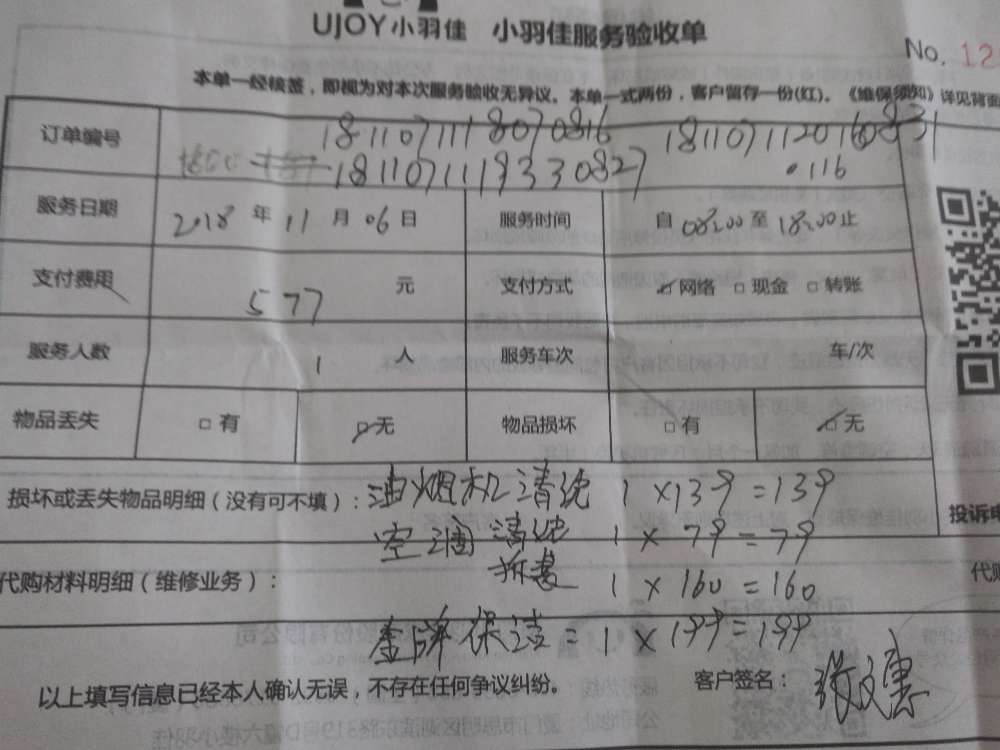 UJOY小羽佳 小羽佳服务验收单
No. 12
本单一经核签，即视为对本次服务验收无异议。本单一式两份，客户留存一份(红)。《维保须知》详见背面
订单编号 181107111 8070816 1811071120160831
181107111833 0827 .116
服务日期 2018 年 11 月 06 日 服务时间 自 08:00 至 18:00 止
支付费用 577 元 支付方式 ☑网络 □现金 □转账
服务人数 1 人 服务车次 车/次
物品丢失 □有 ☑无 物品损坏 □有 ☑无
损坏或丢失物品明细（没有可不填）：油烟机清洗 1×139=139
投诉电
空调清洗 1×79=79
代购材料明细（维修业务）： 拆装 1×160=160
代购
金牌保洁=1×199=199
以上填写信息已经本人确认无误，不存在任何争议纠纷。 客户签名：